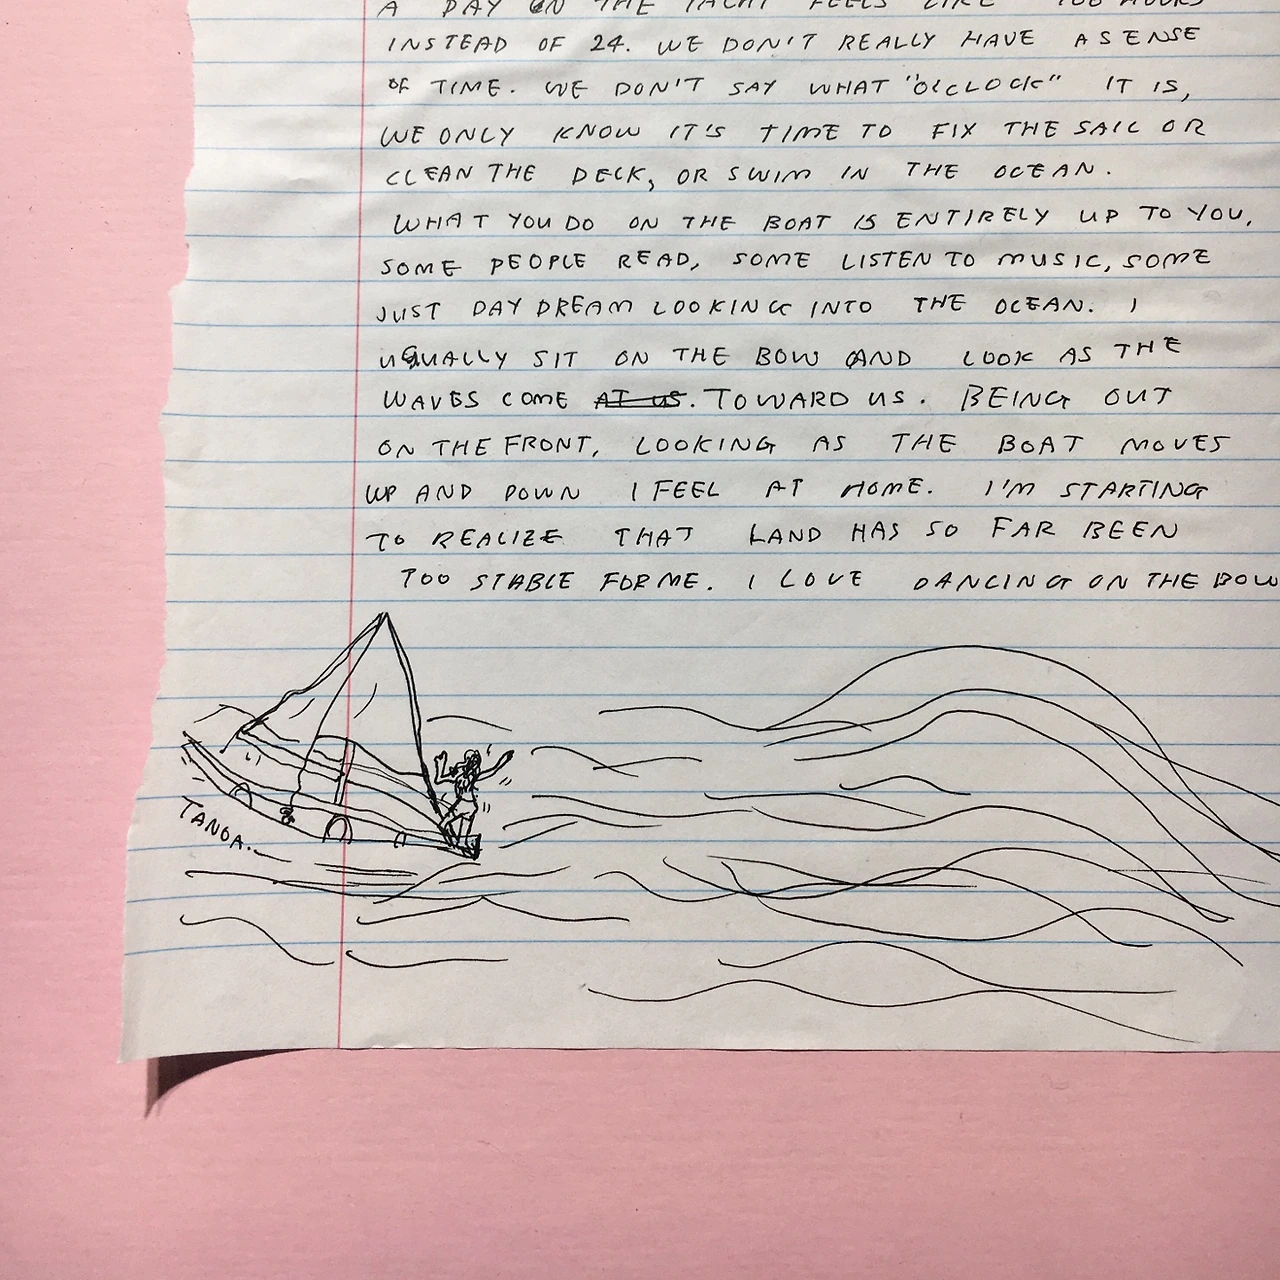 A DAY ON THE YACHT FEELS LIKE 100 HOURS
INSTEAD OF 24. WE DON'T REALLY HAVE A SENSE
OF TIME. WE DON'T SAY WHAT "O'CLOCK" IT IS,
WE ONLY KNOW IT'S TIME TO FIX THE SAIL OR
CLEAN THE DECK, OR SWIM IN THE OCEAN.
WHAT YOU DO ON THE BOAT IS ENTIRELY UP TO YOU,
SOME PEOPLE READ, SOME LISTEN TO MUSIC, SOME
JUST DAYDREAM LOOKING INTO THE OCEAN. I
USUALLY SIT ON THE BOW AND LOOK AS THE
WAVES COME AT US. TOWARD US. BEING OUT
ON THE FRONT, LOOKING AS THE BOAT MOVES
UP AND DOWN I FEEL AT HOME. I'M STARTING
TO REALIZE THAT LAND HAS SO FAR BEEN
TOO STABLE FOR ME. I LOVE DANCING ON THE BOW
TANOA..